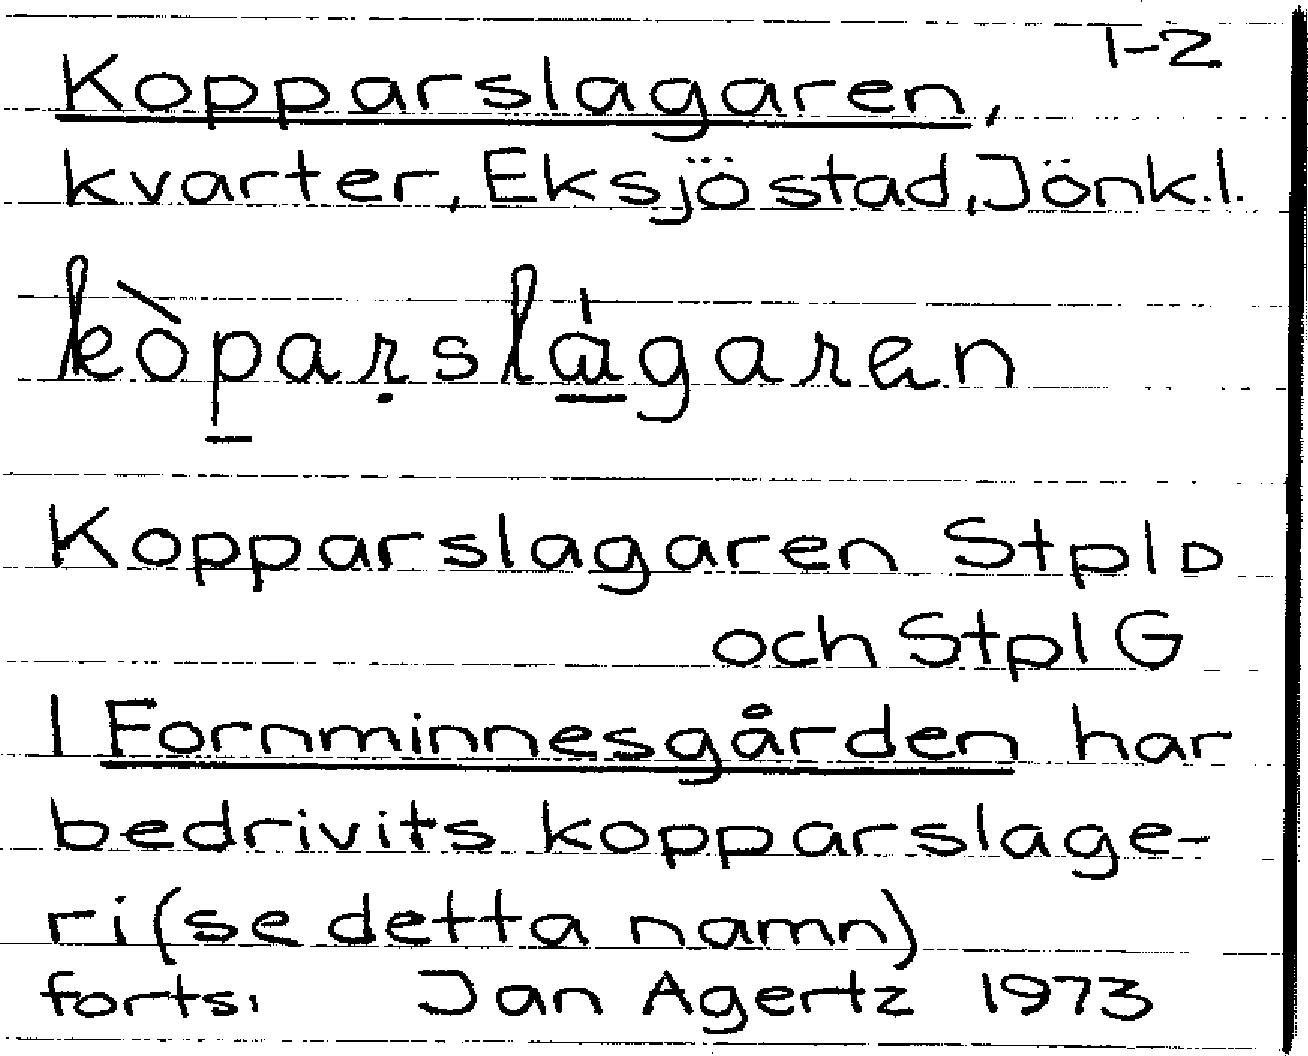 1-2
Kopparslagaren,
kvarter, Eksjö stad, Jönk.l.
Kopparslagaren Stpl D
och Stpl G
I Fornminnesgården har
bedrivits kopparslage-
ri (se detta namn)
forts. Jan Agertz 1973